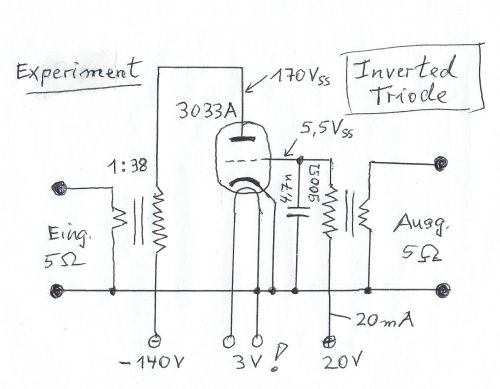 Experiment
170Vss
Inverted
Triode
3033A
5,5Vss
1:38
4,7n
500Ω
Eing.
5Ω
Ausg.
5Ω
20mA
-140V
3V!
20V